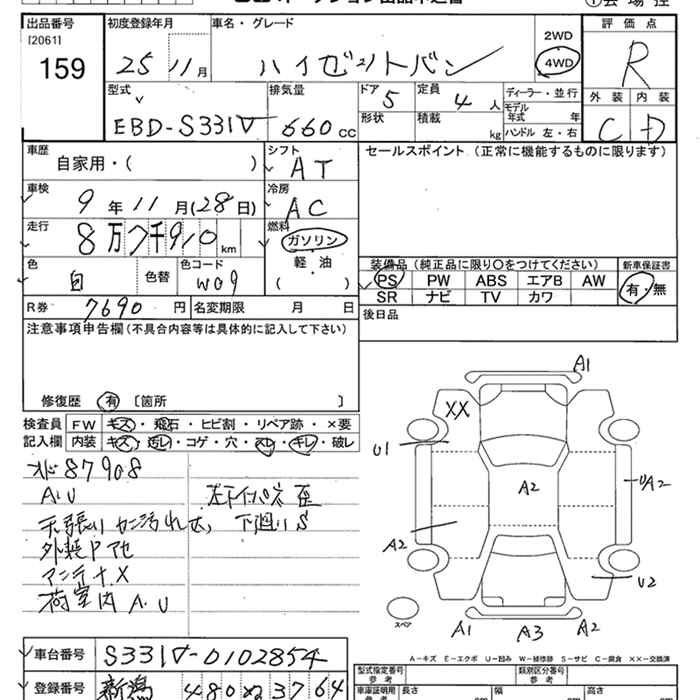 出品番号
[20611]
159
初度登録年月
25 11月
車名・グレード
ハイゼットバン
2WD
4WD
評価点
R
外装 内装
C D
型式
EBD-S331V
排気量
660cc
ドア 5
形状
定員 4人
積載 kg
ディーラー・並行
モデル年式 年
ハンドル 左・右
車歴
自家用・( )
シフト
AT
セールスポイント(正常に機能するものに限ります)
車検
9年11月(28日)
冷房
AC
走行
8万7千910km
燃料
ガソリン
軽・油
( )
色
白
色替
色コード
W09
装備品(純正品に限り○をつけてください)
PS PW ABS エアB AW
SR ナビ TV カワ
新車保証書
有・無
R券 7690円
名変期限 月 日
後日品
注意事項申告欄(不具合内容等は具体的に記入して下さい)
修復歴 有 〔箇所 〕
検査員記入欄
FW キズ・飛石・ヒビ割・リペア跡・×要
内装 キズ・汚レ・コゲ・穴・スレ・キレ・破レ
87908
A.U
天張り
下廻りS
外装P他
アンテナX
荷室内A.U
A1
XX
U1
A2
UA2
A2
U2
スペア
A1
A3
A2
A-キズ E-エクボ U-凹み W-補修跡 S-サビ C-腐食 XX-交換済
車台番号 S331V-0102854
登録番号 新潟 480 3764
型式指定番号
参考
類別区分番号
参考
車庫証明用
参考
長さ
幅
高さ